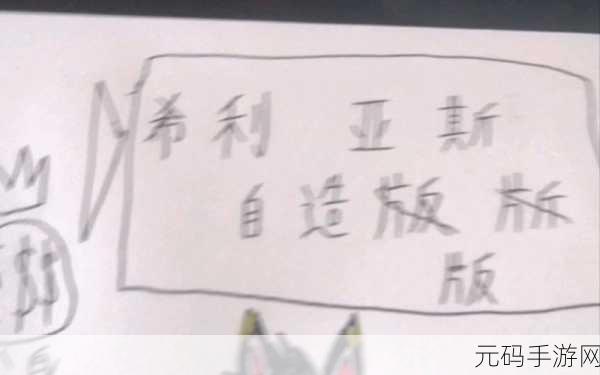 希利亚斯
自造版版
版
元码手游网